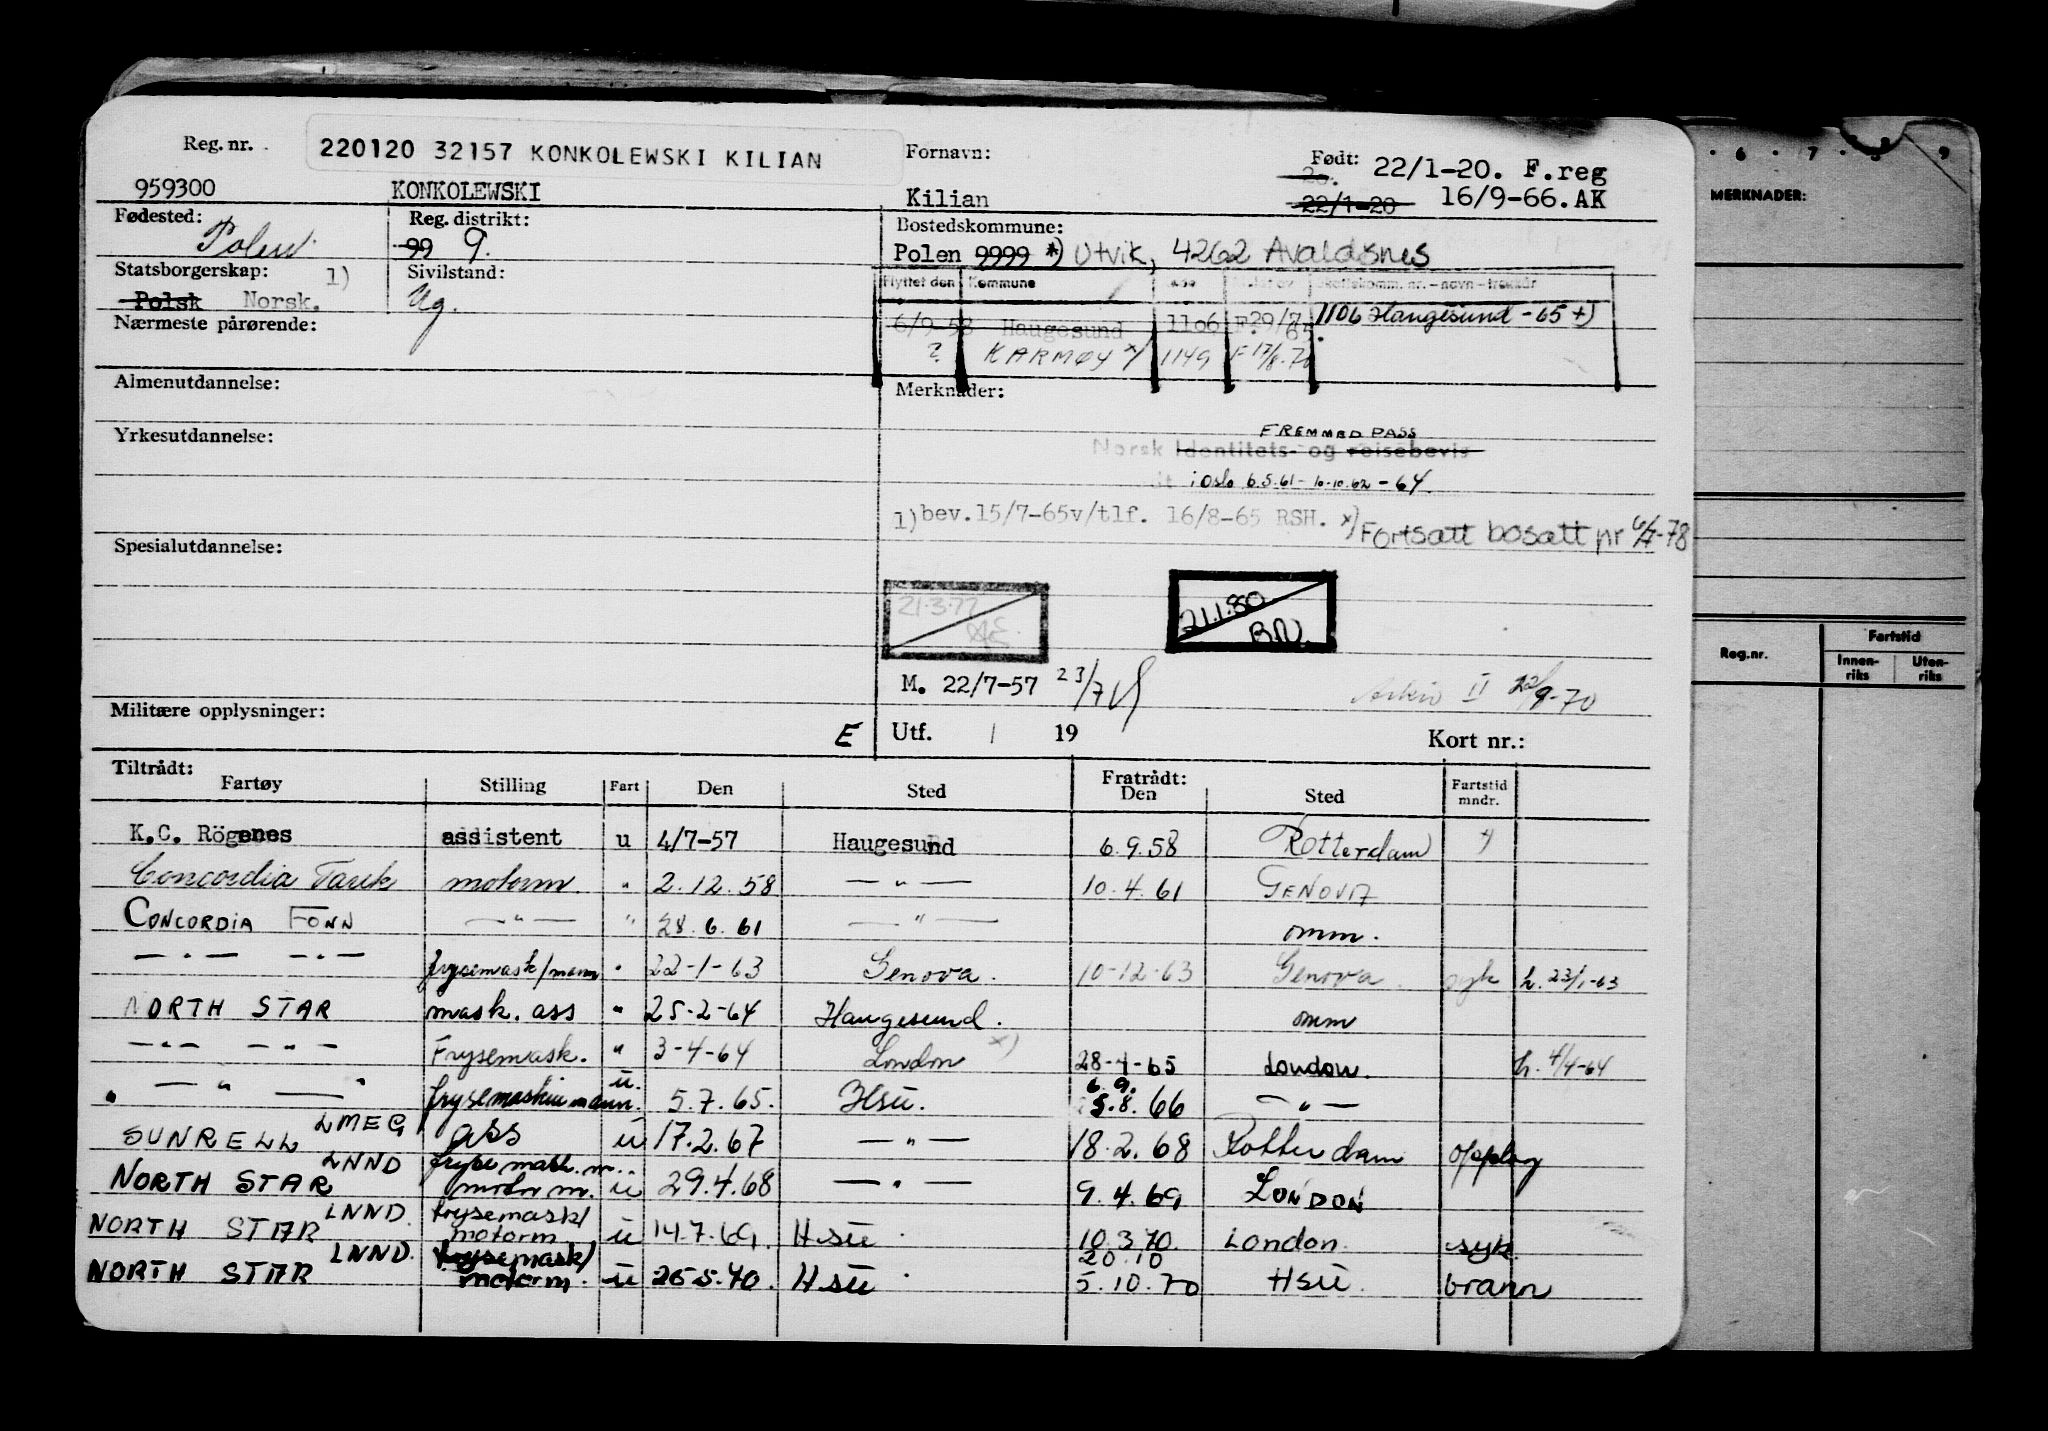 Reg. nr. 220120 32157 KONKOLEWSKI KILIAN Fornavn: Født: 22/1-20. F.reg
959300 KONKOLEWSKI Kilian 22/1-20 16/9-66.AK
Fødested: Polen Reg. distrikt: 99 9. Bostedskommune:
Polen 9999 *) Utvik, 4262 Avaldsnes
Statsborgerskap: 1) Sivilstand:
Polsk Norsk. Ug.
Flyttet den Kommune
Nærmeste pårørende:
6/9-58 Haugesund 1106 F.29/7 65. 1106 Haugesund - 65 +)
? KARMØY x) 1149 F 17/8-70
Almenutdannelse: Merknader:
Yrkesutdannelse:
FREMMED PASS
Norsk Identitets- og reisebevis
i Oslo 6.5.61 - 10.10.62 - 64
1) bev. 15/7-65v/tlf. 16/8-65 RSH. x) Fortsatt bosatt pr 6/7-78
Spesialutdannelse:
21.3.77
21.1.80
M. 22/7-57 23/7
Arkiv II 22/9-70
Militære opplysninger: E Utf. / 19 Kort nr.:
Tiltrådt: Fratrådt:
Fartøy Stilling Fart Den Sted Den Sted Fartstid mndr.
K.C. Rögenes assistent u 4/7-57 Haugesund 6.9.58 Rotterdam
Concordia Tank motorm. " 2.12.58 — " — 10.4.61 GENOVA
CONCORDIA FONN — " — " 28.6.61 — " — omm.
— " — — " — frysemask/mann " 22-1-63 Genova. 10-12-63 Genova. syk h. 23/1-63
NORTH STAR mask. ass " 25-2-64 Haugesund. omm
— " — — " — Frysemask. " 3-4-64 London x) 28-4-65 London. h. 4/4-64
" — " — " frysemaskinmann. u. 5.7.65. Hsu. 6.9. 5.8.66 — " —
SUNRELL LMEG ass u 17.2.67 — " — 18.2.68 Rotterdam opplag
NORTH STAR LNND fryse mask. m. motor m. u 29.4.68 — " — 9.4.69 LONDON
NORTH STAR LNND. frysemask/ motorm u 14.7.69. Hsu 10.3.70. London. syk.
NORTH STAR LNND. frysemask/ motorm. u 26-5-70. Hsu 20.10 5.10.70 Hsu. brann
6 7 8 9
MERKNADER:
Reg.nr. Fartstid
Innen-riks Uten-riks